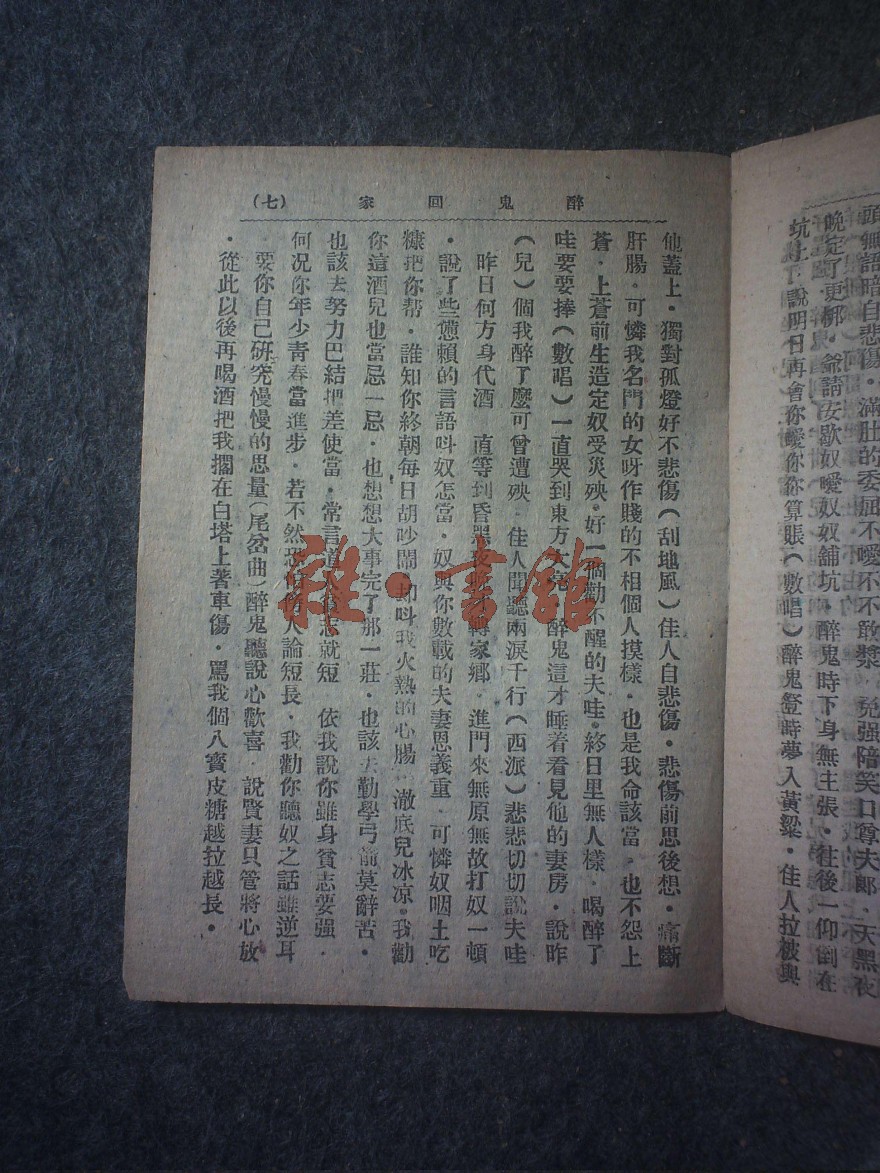 頭無語暗自悲傷·滿肚的委屈不噯不不敢漿·免强陪笑口尊夫郎·天黑夜
晚定了更梆·爺請安歇奴噯奴奴舖坑·醉鬼時下身無主張·往後一仰倒在
坑上了說明日再會你噯你你算賬(數唱)醉鬼登時夢入黃粱·佳人拉被與
醉鬼回家
(七)
他蓋上·獨對孤燈好不悲傷(刮地風)佳人自悲傷·悲傷前思後想·痛斷
肝腸·可憐我名門的女呀作賤的不相個人摸樣·也是我命該當·也不怨上
蒼·上蒼前生造定奴受災殃·好一個勸不醒的夫哇·終日里無人樣·喝醉了
哇要要捧(數唱)一直哭到東方大亮·醉鬼這才睡着看見他的妻房·說昨
(兒)個我醉了麼可曾遭殃·佳人聞聽兩淚千行(西派)悲悲切切說夫哇
昨日何方身代酒·直等到昏黑夜晚才轉家鄉·進門來無原無故打奴一頓
·說了些憊賴的言語呌奴怎當·奴與你數載的夫妻恩義重·可憐奴咽土吃
糠把你帮·誰知你終朝每日胡吵鬧·却呌我火熱的心腸·澈底兒冰凉·我勸
你這酒兒也當忌一忌·也想想大事完了那一莊·也該去勤學弓箭莫辭苦·
也該去努力巴結把差使當·常言道人貧志就短·依我說你雖身貧志要强·
何况你年少青春當進步·若不然恐怕傍人論短長·我勸你聽奴之話雖逆耳
·要你自己研究慢慢的思量(尾岔曲)醉鬼聽說心歡喜·說賢妻只管將心放
·從此以後再喝酒把我擱在白塔上著車傷·罵我個八寶皮糖越拉越長·
雜·書館